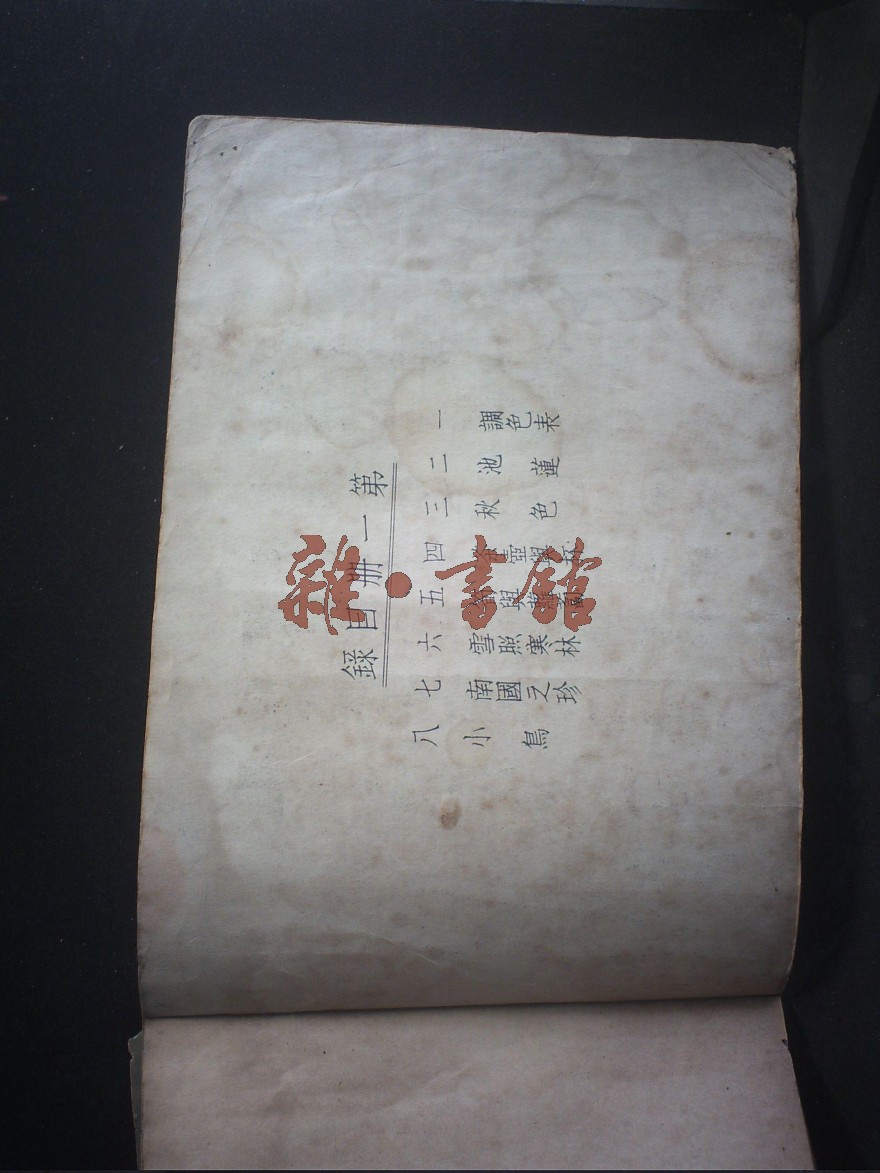 第一冊目錄
一 調色表
二 池蓮
三 秋色
四 壺與
五 與蘿蔔
六 雪照寒林
七 南國之珍
八 小鳥